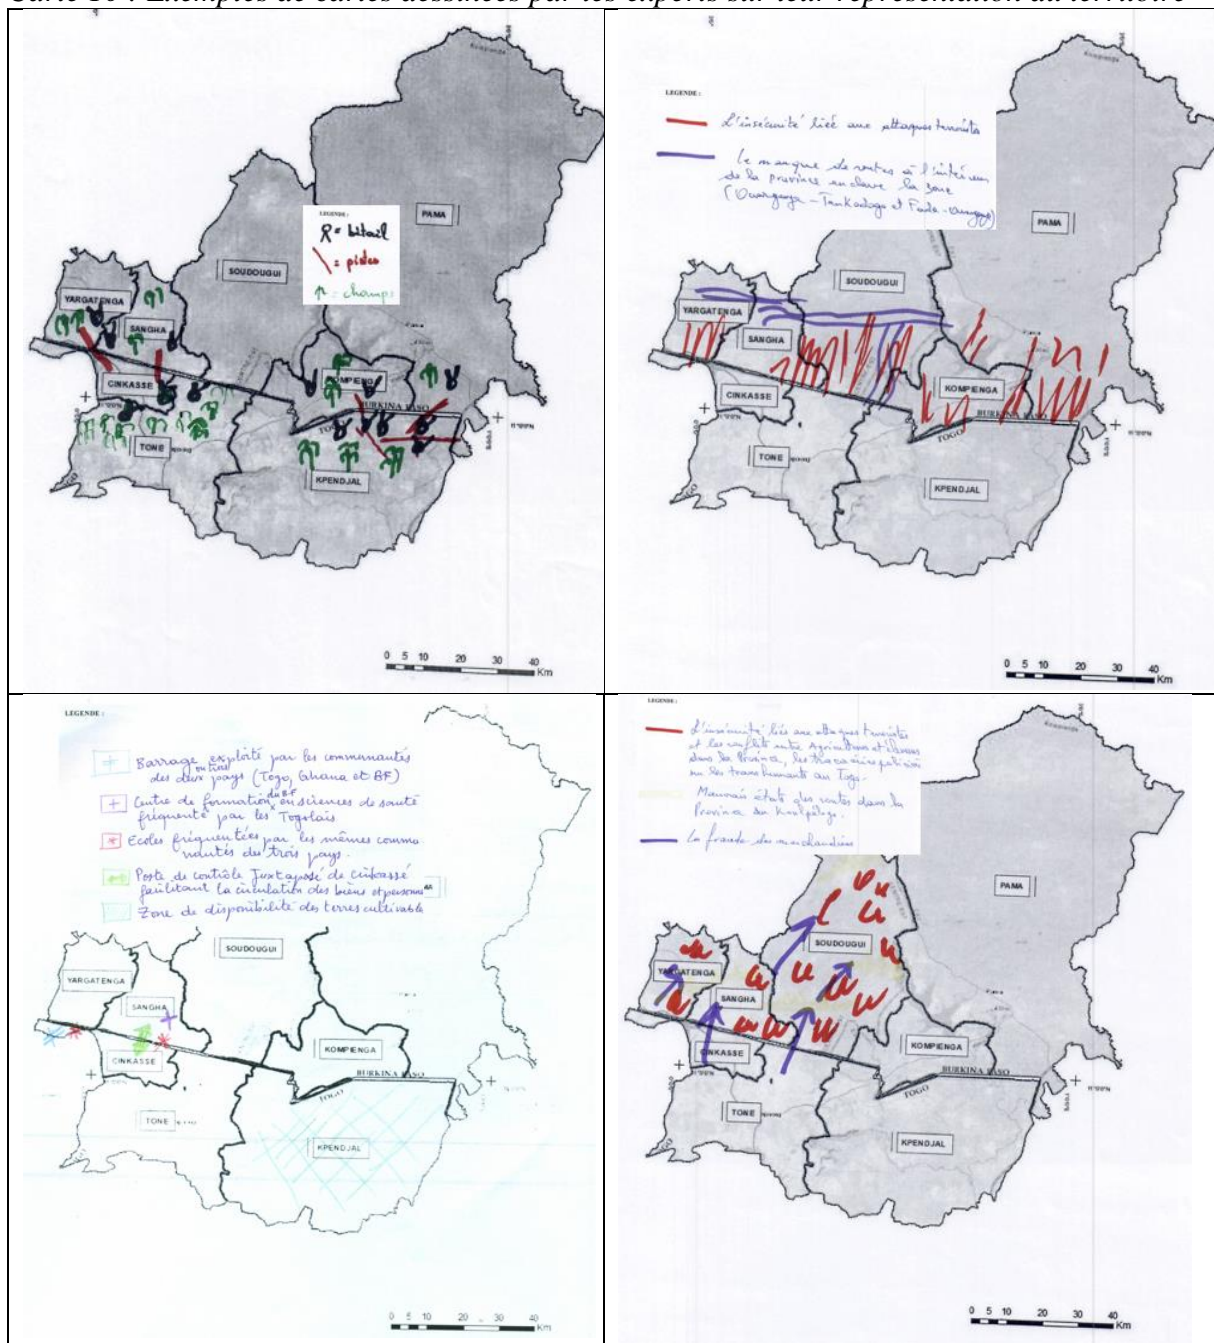 Carte 10 : Exemples de cartes dessinées par les experts sur leur représentation du territoire
LEGENDE :
= bétail
= pistes
= champs
PAMA
SOUDOUGUI
YARGATENGA
SANGHA
CINKASSE
KOMPIENGA
BURKINA FASO
TOGO
TONE
KPENDJAL
0 5 10 20 30 40
Km
LEGENDE :
L'insécurité liée aux attaques terroristes
Le manque de routes à l'intérieur
de la province enclave la zone
(Ouargaye - Tenkodogo et Fada - Ouargaye)
PAMA
SOUDOUGUI
YARGATENGA
SANGHA
CINKASSE
KOMPIENGA
BURKINA FASO
TOGO
11°00'N
TONE
KPENDJAL
0 5 10 20 30 40
Km
LEGENDE :
Barrage exploité par les communautés
des deux ou trois pays (Togo, Ghana et BF)
Centre de formation du BF en sciences de santé
fréquenté par les Togolais
Ecoles fréquentées par les mêmes commu
nautés des trois pays.
Poste de contrôle Juxtaposé de cinkassé
facilitant la circulation des biens et personnes
Zone de disponibilité des terres cultivable
SOUDOUGUI
YARGATENGA
SANGHA
CINKASSE
KOMPIENGA
BURKINA FASO
TOGO
TONE
KPENDJAL
0 5 10 20 30 40
Km
LEGENDE :
L'insécurité liée aux attaques terroristes
et les conflits entre Agriculteurs et éleveurs
dans la Province, les tracasseries policières
sur les transhumants au Togo.
Mauvais état des routes dans la
Province du Koulpélogo.
La fraude des marchandises
PAMA
SOUDOUGUI
YARGATENGA
SANGHA
CINKASSE
KOMPIENGA
BURKINA FASO
TOGO
TONE
KPENDJAL
0 5 10 20 30 40
Km